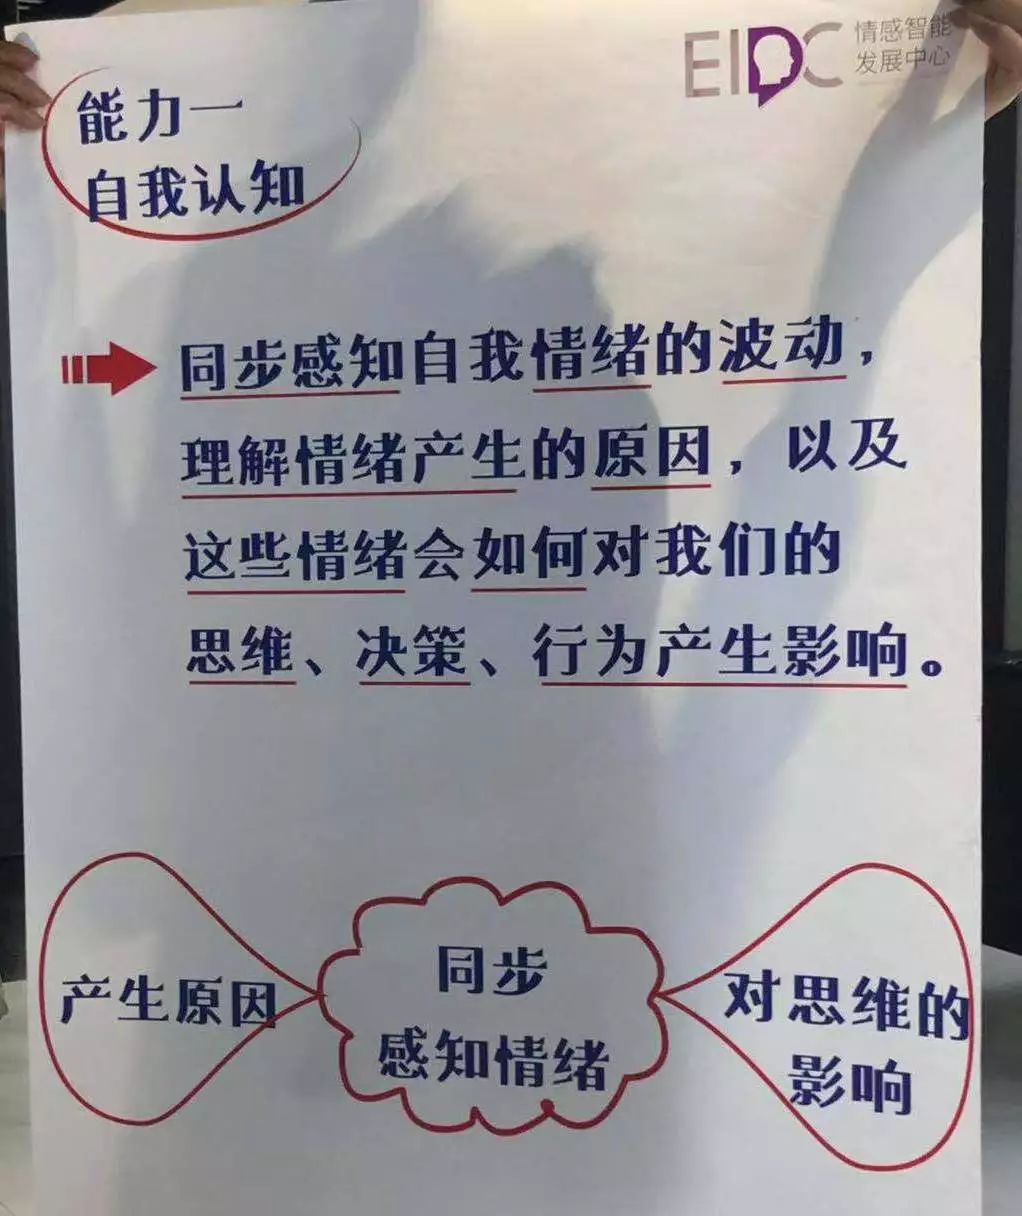 EIDC
情感智能
发展中心
能力一
自我认知
同步感知自我情绪的波动，
理解情绪产生的原因，以及
这些情绪会如何对我们的
思维、决策、行为产生影响。
产生原因
同步
感知情绪
对思维的
影响